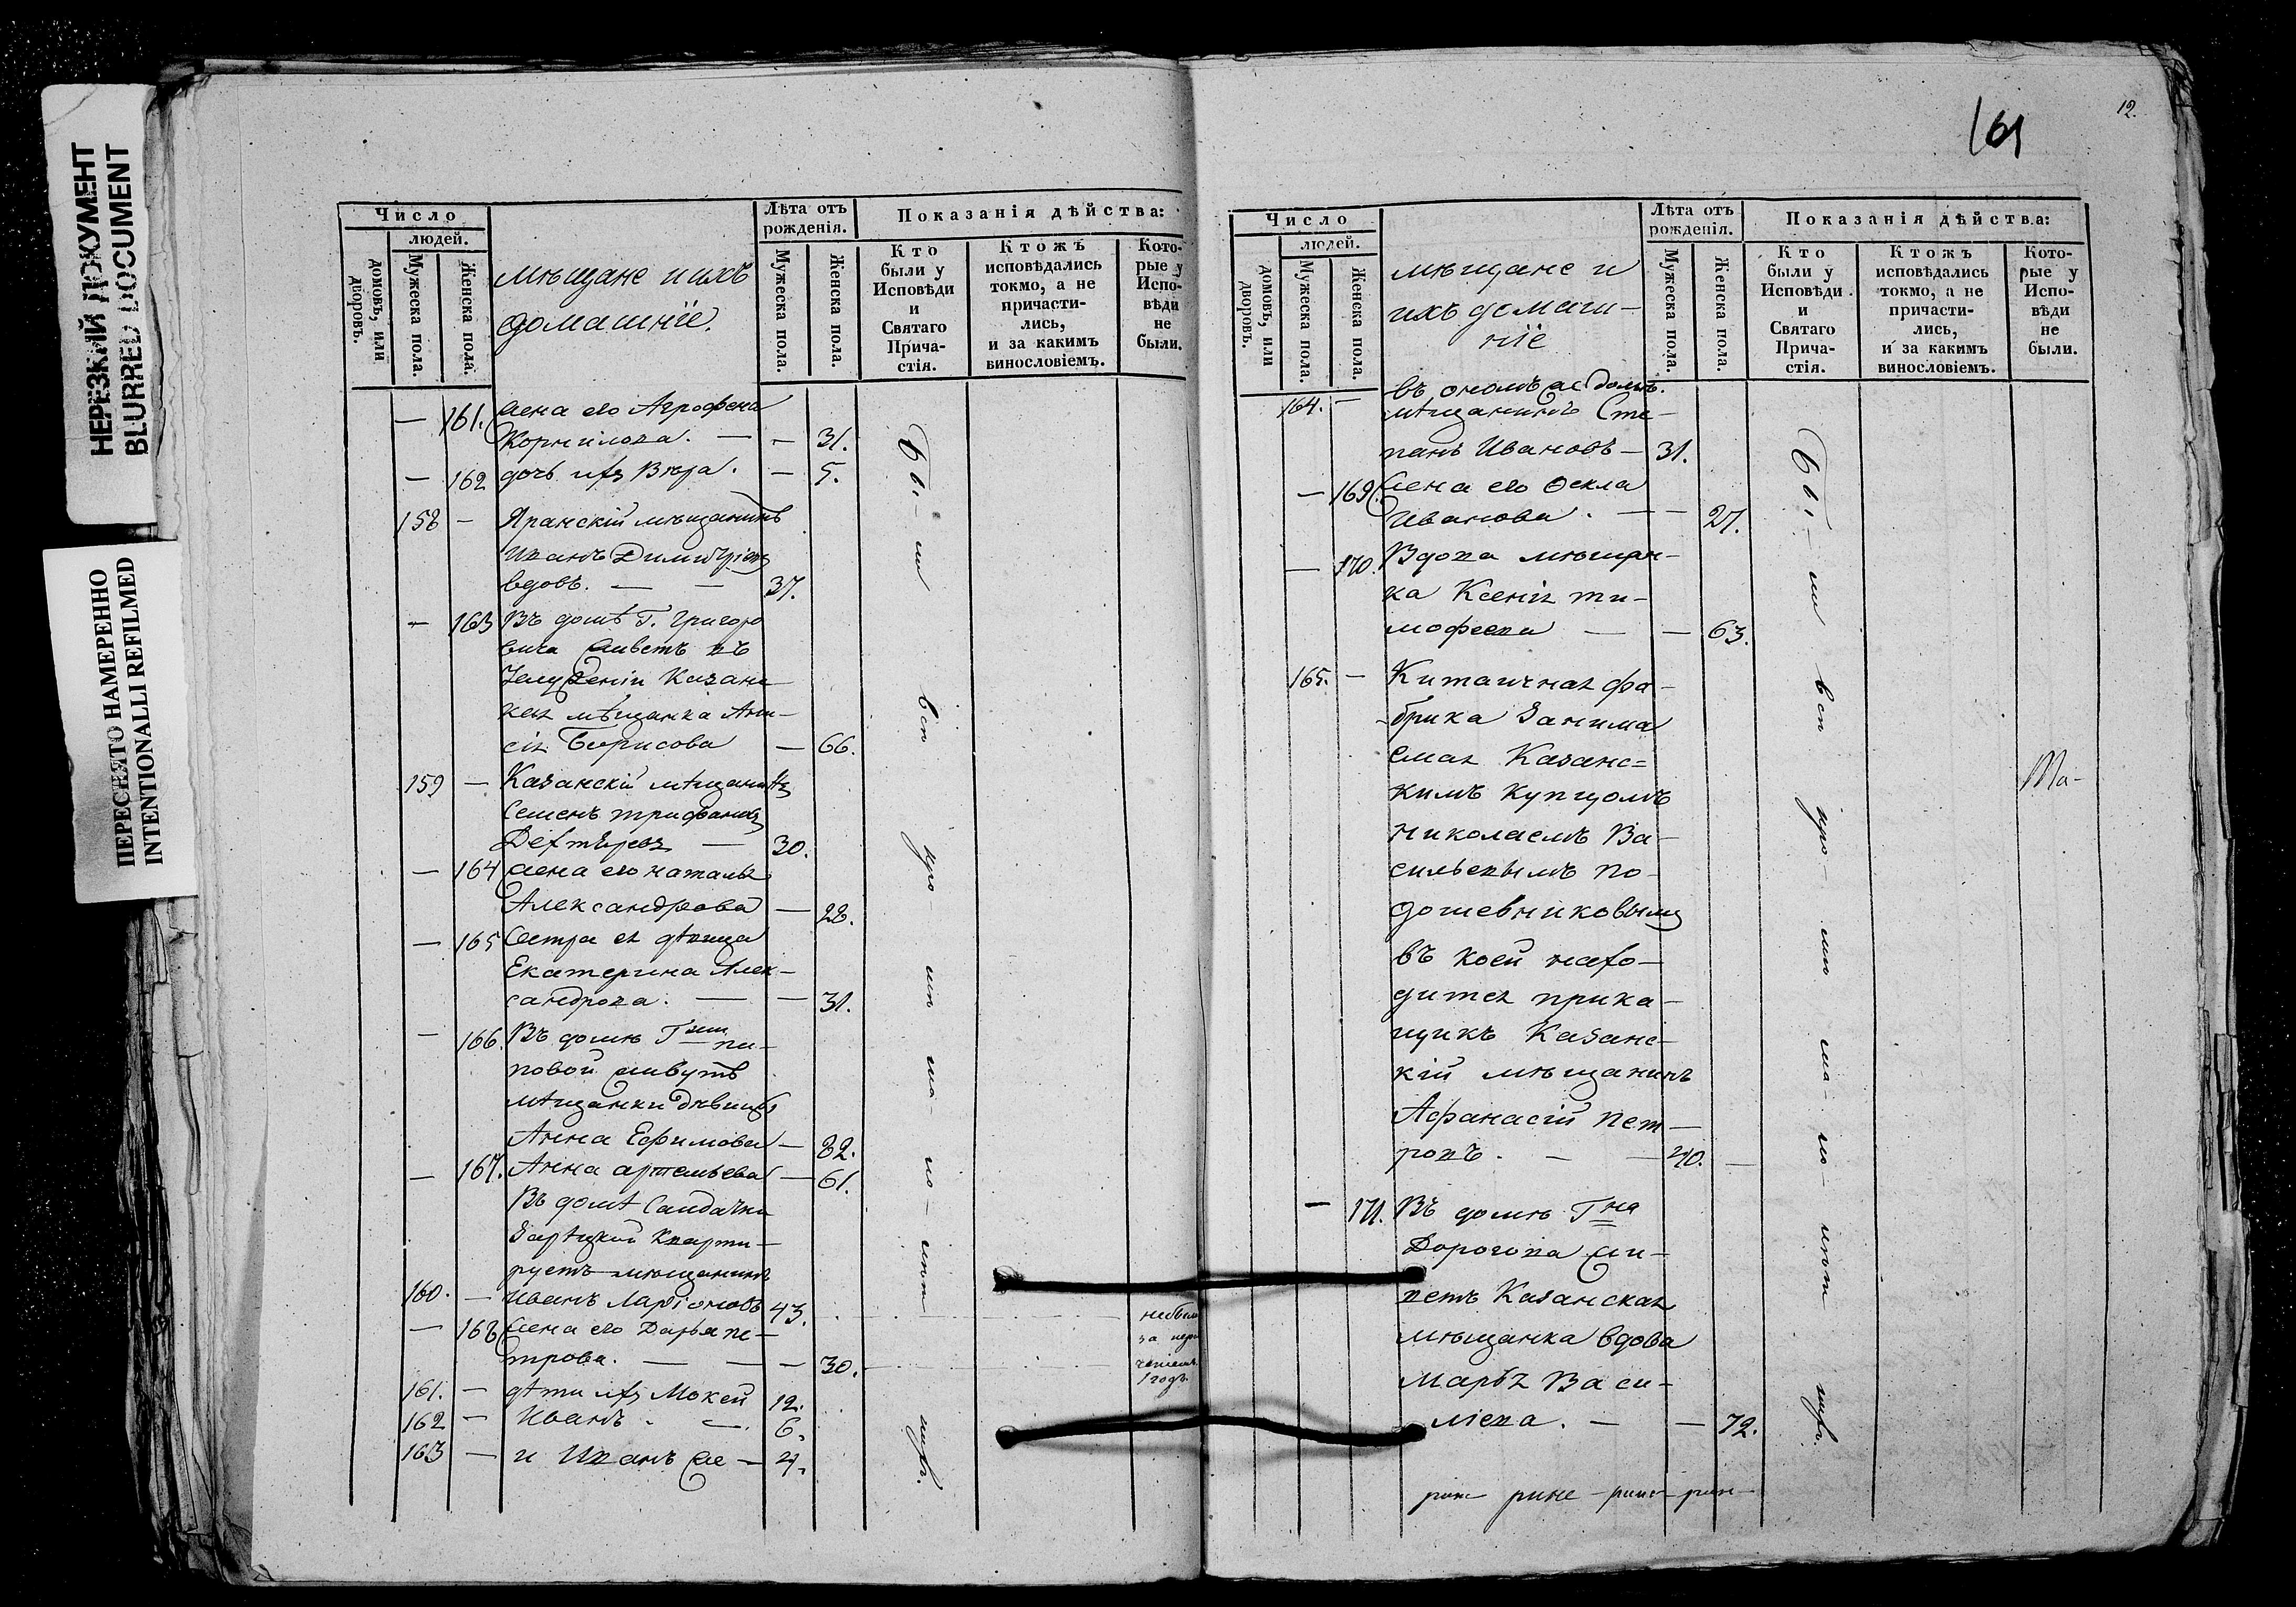 НЕРЕЗКИЙ ДОКУМЕНТ
BLURRED DOCUMENT
ПЕРЕСНЯТО НАМЕРЕННО
INTENTIONALLI REFILMED
Число
людей.
домовъ, или дворовъ.
Мужеска пола.
Женска пола.
мѣщане и ихъ
домашніе.
Лѣта отъ
рожденія.
Мужеска пола.
Женска пола.
Показанія дѣйства:
Кто
были у
Исповѣди
и
Святаго
Прича-
стія.
Ктожъ
исповѣдались
токмо, а не
причасти-
лись,
и за какимъ
винословіемъ.
Кото-
рые у
Испо-
вѣди
не
были.
— 161. жена его Агрофена
Корнилова. — — 31.
— 162 дочь ихъ Вѣра. — 5.
158 — Яранскій мѣщанинъ
Иванъ Димитріевъ
вдовъ. — — 37.
— 163 Въ домѣ Г. Григоро
вича живетъ въ
Казанс
кая мѣщанка Ани-
сія Борисова — 66.
159 — Казанскій мѣщанинъ
Семенъ Трифановъ
Дехтѣревъ — 30.
— 164 жена его Наталья
Александрова — 28.
— 165 Сестра ея дѣвица
Екатерина Алек-
сандрова. — — 31.
— 166. Въ домѣ Гжи
повой живутъ
мѣщанки дѣвицы
Анна Ефимова — 82.
— 167. Анна Артемьева — 61.
Въ домѣ
Зарѣцкой кварти-
руетъ мѣщанинъ
160. — Иванъ Ларіоновъ 43.
— 168 жена его Дарья Пе-
трова. — — — 30.
не были
за
1 годъ.
161. — дѣти ихъ Мокей 12.
162 — Иванъ. — 6.
163 — и Иванъ же — 4.
Бы-
ли
всп
про-
мп
ма-
ло-
лѣт
161
12.
Число
людей.
домовъ, или дворовъ.
Мужеска пола.
Женска пола.
мѣщане и
ихъ домаш-
ніе
Лѣта отъ
рожденія.
Мужеска пола.
Женска пола.
Показанія дѣйства:
Кто
были у
Исповѣди
и
Святаго
Прича-
стія.
Ктожъ
исповѣдались
токмо, а не
причасти-
лись,
и за какимъ
винословіемъ.
Кото-
рые у
Испо-
вѣди
не
были.
въ ономъ же домѣ.
164. — мѣщанинъ Сте-
панъ Ивановъ — 31.
— 169. жена его Ѳекла
Иванова. — — 27.
— 170. Вдова мѣщан-
ка Ксенія Ти-
мофеева — — 63.
165. — Китаичная фа-
брика занима
емая Казанс=
кимъ купцомъ
Николаемъ Ва-
сильевымъ По-
дошевниковымъ
въ коей нахо-
дится прика-
щикъ Казанс-
кій мѣщанинъ
Афанасій Пет-
ровъ. — — 40. —
— 171. Въ домѣ Гна
Дорогова жи-
ветъ Казанская
мѣщанка вдова
Марья Васи-
ліева. — — 72.
Бы-
ли
всп
про-
ма-
ло-
лѣт
Ма-